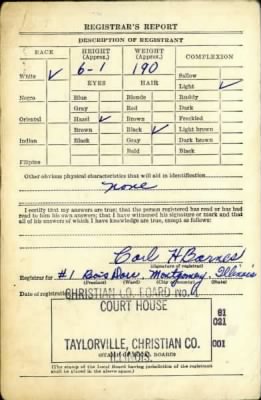 REGISTRAR'S REPORT
DESCRIPTION OF REGISTRANT
RACE HEIGHT (Approx.) WEIGHT (Approx.) COMPLEXION
White ✓ 6-1 190 Sallow
EYES HAIR Light ✓
Negro Blue Blonde Ruddy
Gray Red Dark
Oriental Hazel ✓ Brown Freckled
Brown Black ✓ Light brown
Indian Black Gray Dark brown
Bald Black
Filipino
Other obvious physical characteristics that will aid in identification
none
I certify that my answers are true; that the person registered has read or has had
read to him his own answers; that I have witnessed his signature or mark and that
all of his answers of which I have knowledge are true, except as follows:
Carl H Barnes
(Signature of registrar)
Registrar for #1 Bois Darc Montgomery Illinois
(Precinct) (Ward) (City or county) (State)
Date of registration
CHRISTIAN CO. BOARD NO. 1
COURT HOUSE
81
021
TAYLORVILLE, CHRISTIAN CO. 001
ILLINOIS.
(STAMP OF LOCAL BOARD)
(The stamp of the Local Board having jurisdiction of the registrant
shall be placed in the above space.)